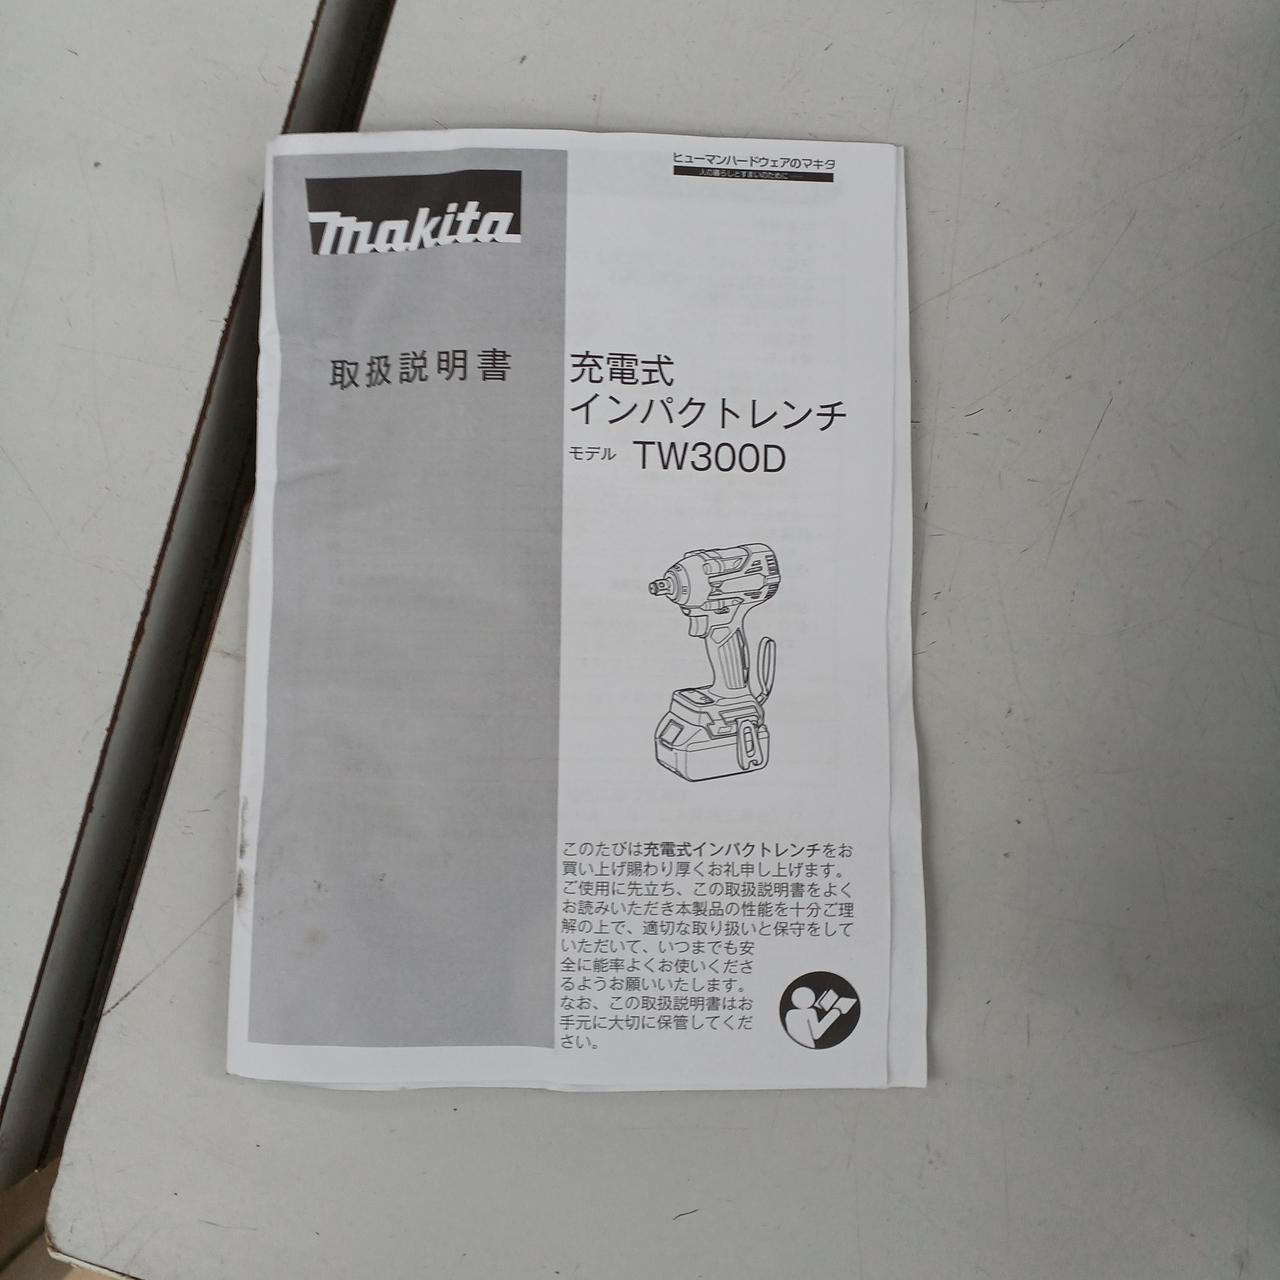 ヒューマンハードウェアのマキタ
人の暮らしとすまいのために
makita
取扱説明書
充電式
インパクトレンチ
モデル TW300D
このたびは充電式インパクトレンチをお
買い上げ賜わり厚くお礼申し上げます。
ご使用に先立ち、この取扱説明書をよく
お読みいただき本製品の性能を十分ご理
解の上で、適切な取り扱いと保守をして
いただいて、いつまでも安
全に能率よくお使いくださ
るようお願いいたします。
なお、この取扱説明書はお
手元に大切に保管してくだ
さい。